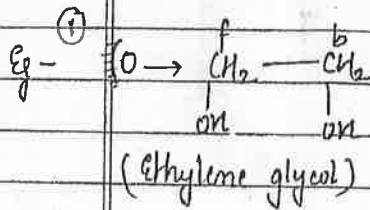 ①
f b
Eg - (O → CH2 — CH2
OH OH
(Ethylene glycol)